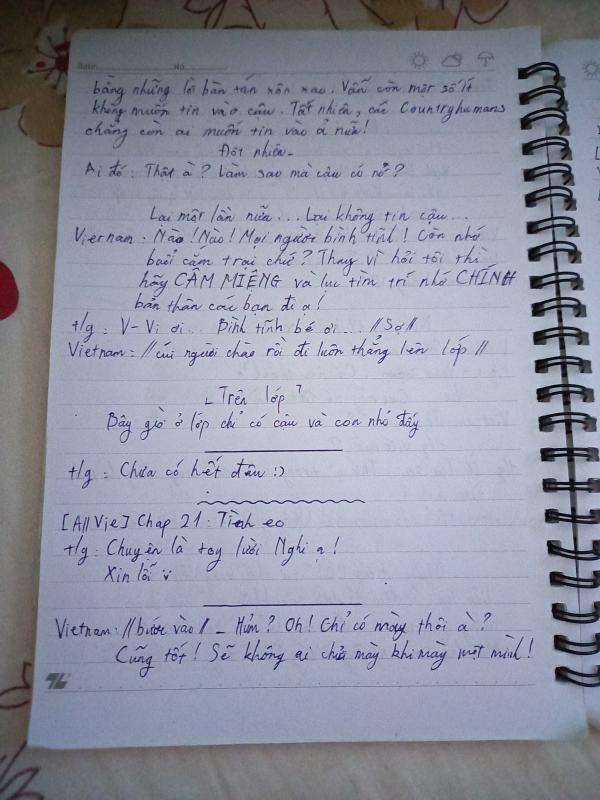 Date No
bằng những lời bàn tán xôn xao. Vẫn còn một số ít
không muốn tin vào cậu. Tất nhiên, các Countryhumans
chẳng còn ai muốn tin vào ả nữa!
Đột nhiên_
Ai đó: Thật à? Làm sao mà cậu có nổ?
Lại một lần nữa... Lại không tin cậu...
Vietnam: Nào! Nào! Mọi người bình tĩnh! Còn nhớ
buổi cắm trại chứ? Thay vì hỏi tôi thì
hãy CÂM MIỆNG và lục tìm trí nhớ CHÍNH
bản thân các bạn đi ạ!
t/g: V-Vi ơi... Bình tĩnh bé ơi... //Sợ//
Vietnam: //cúi người chào rồi đi luôn thẳng lên lớp//
⌞Trên lớp⌝
Bây giờ ở lớp chỉ có cậu và con nhỏ đấy
t/g: Chưa có hết đâu :)
[AllVie] Chap 21: Tình eo
t/g: Chuyện là tay lười Nghi ạ!
Xin lỗi :v
Vietnam: //bước vào// _ Hửm? Oh! Chỉ có mày thôi à?
Cũng tốt! Sẽ không ai chửi mày khi mày một mình!